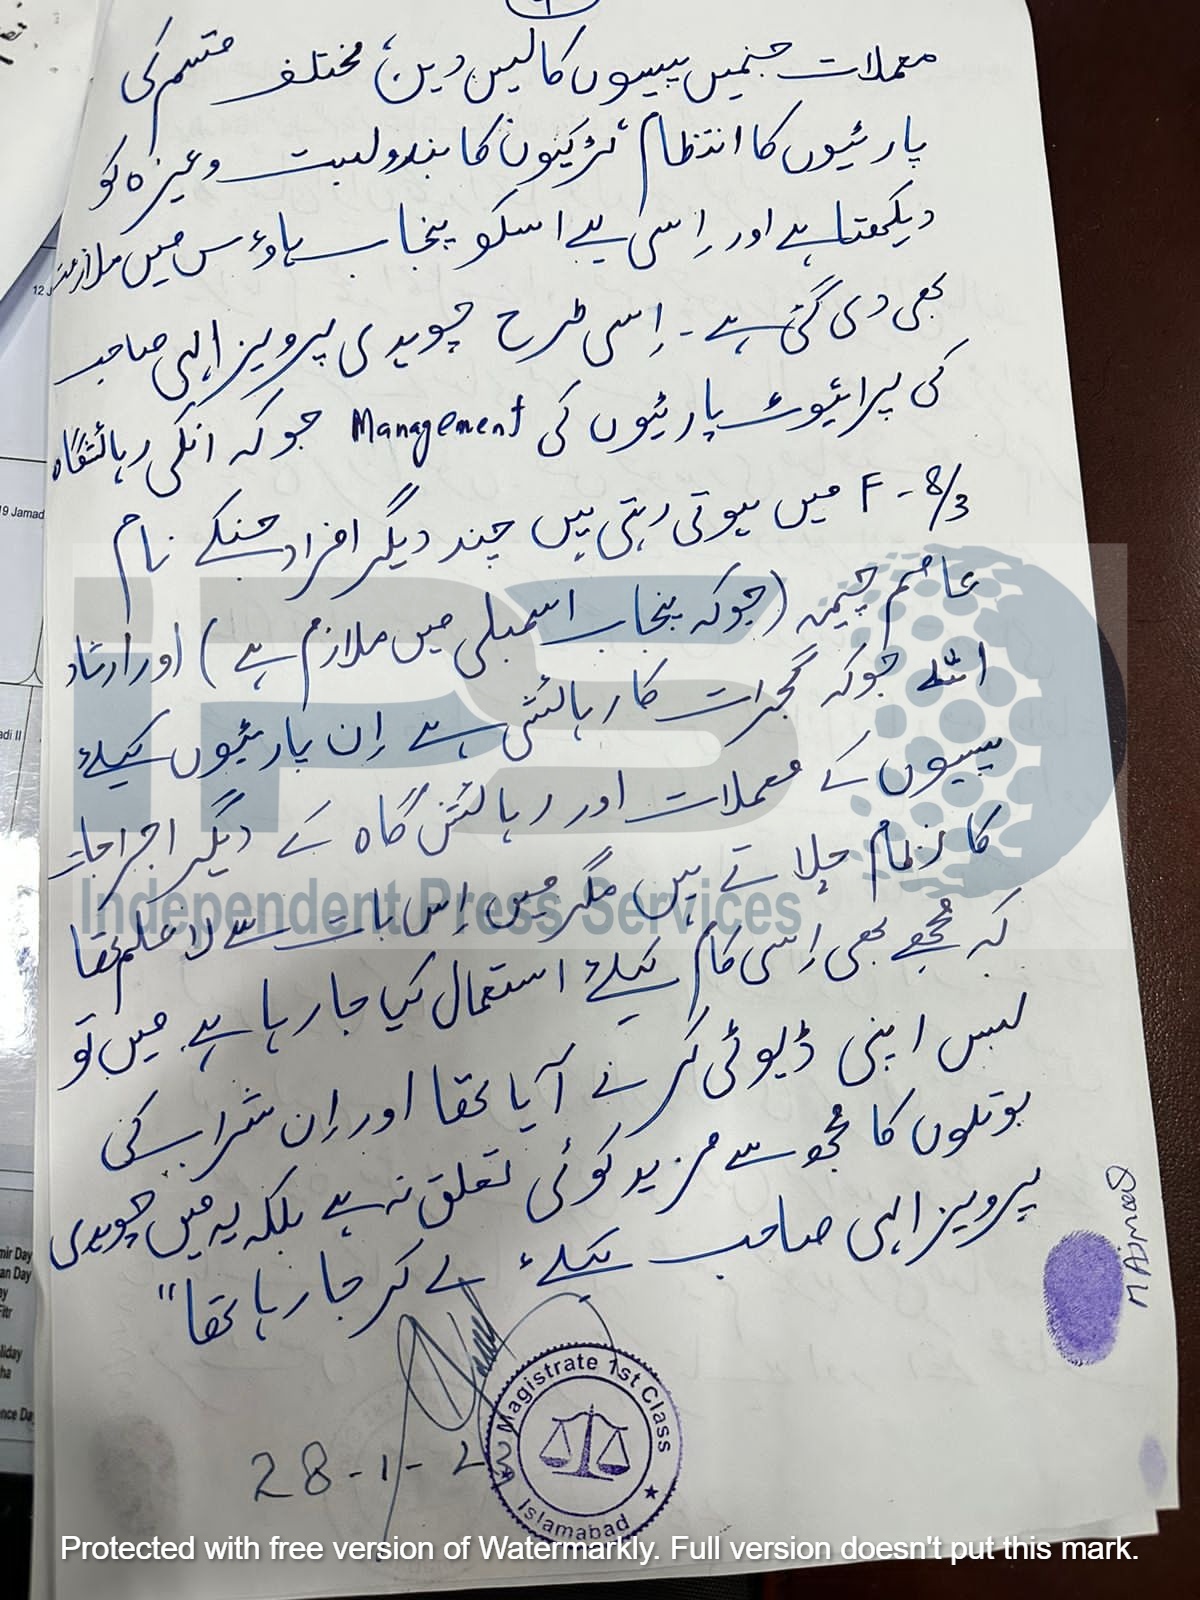 معملات جنمیں پیسوں کا لیں دین، مختلف قسم کی
پارٹیوں کا انتظام، لڑکیوں کا بندولبست وغیرہ کو
دیکھتا ہے اور اِسی لیے اسکو پنجاب ہاؤس میں ملازمت
بھی دی گئی ہے۔ اِسی طرح چوہدی پرویز الہی صاحب
کی پرائیوٹ پارٹیوں کی Management جو کہ انکی رہائشگاہ
F-8/3 میں ہوتی رہتی ہیں چند دیگر افراد جنکے نام
عاصم چیمہ (جو کہ پنجاب اسمبلی میں ملازم ہے) اور ارشاد
جو کہ گجرات کا رہائشی ہے اِن پارٹیوں کیلئے
پیسوں کے معملات اور رہائش گاہ کے دیگر اخراجات
کا نظام چلاتے ہیں مگر میں اِس بات سے لا علم تھا
کہ مجھے بھی اِسی کام کیلئے استعمال کیا جا رہا ہے۔ میں تو
بس اپنی ڈیوٹی کرنے آیا تھا اور اِن شراب کی
بوتلوں کا مجھ سے مزید کوئی تعلق نہ ہے بلکہ یہ میں چوہدی
پرویز الہی صاحب کیلئے لے کر جا رہا تھا"
M Ajmad
28-1-23
Magistrate 1st Class
Islamabad
IPS
Independent Press Services
12 J
19 Jamad
adi II
mir Day
an Day
ay
Fitr
liday
ha
nce Da
Protected with free version of Watermarkly. Full version doesn't put this mark.